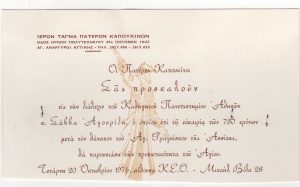 ΙΕΡΟΝ ΤΑΓΜΑ ΠΑΤΕΡΩΝ ΚΑΠΟΥΚΙΝΩΝ
ΟΔΟΣ ΗΡΩΩΝ ΠΟΛΥΤΕΧΝΕΙΟΥ
ΑΓ. ΑΝΑΡΓΥΡΟΙ ΑΤΤΙΚΗΣ - ΤΗΛ.
Οι Πατέρες Καπουκίνοι
Σᾶς προσκαλοῦν
εἰς τὴν διάλεξιν τοῦ Καθηγητοῦ Πανεπιστημίου Ἀθηνῶν
κ. Σάββα Ἀγουρίδη, ὁ ὁποῖος ἐπὶ τῇ εὐκαιρίᾳ τῶν 750 χρόνων
μετὰ τὸν θάνατον τοῦ Ἁγ. Φραγκίσκου τῆς Ἀσσίζης,
θὰ παρουσιάσῃ τὴν προσωπικότητα τοῦ Ἁγίου.
Τετάρτη 20 Ὀκτωβρίου 1976, αἴθουσα Κ.Ε.Ο. - Μιχαὴλ Βόδα 28